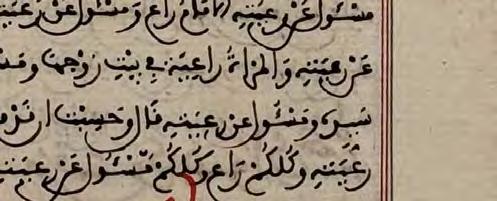 مسئول عن رعيته الامام راع ومسئول عن رعيته
عن رعيته والمرأة راعية في بيت زوجها ومسـ
سيده ومسئول عن رعيته قال وحسبت ان قد
رعيته وكلكم راع وكلكم مسئول عن رعيته